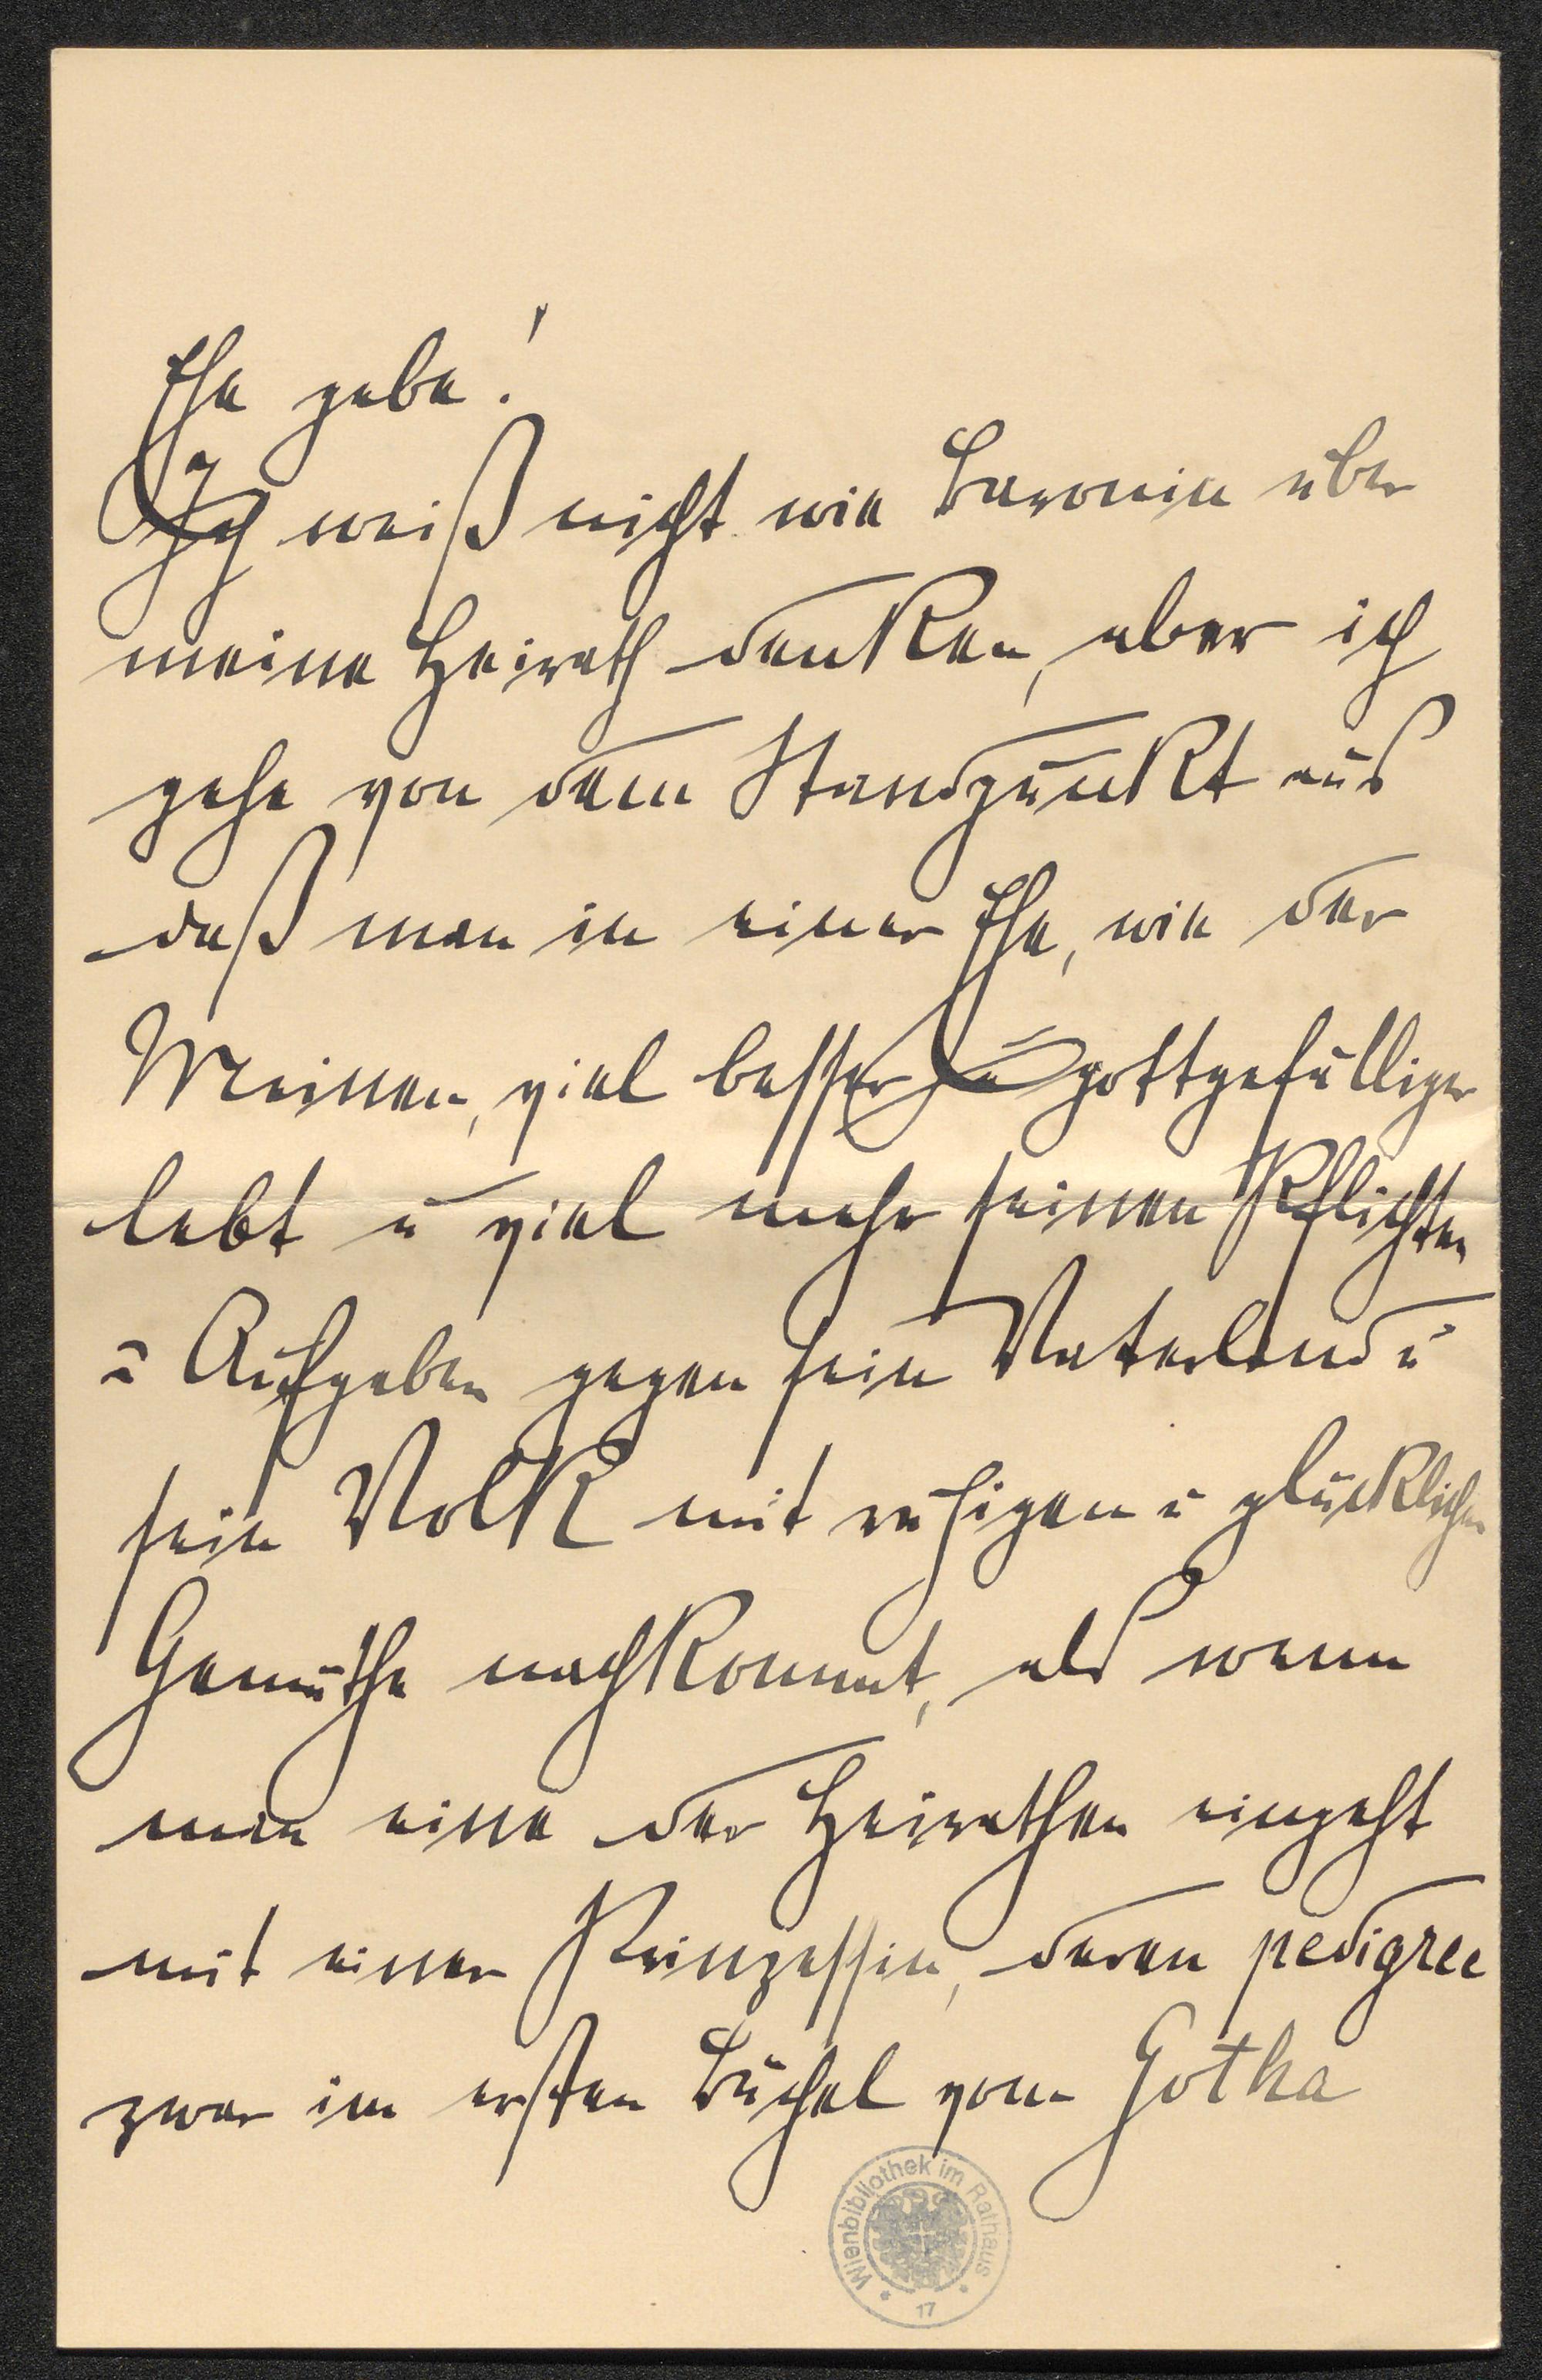 Ehe gebe!
Ich weiß nicht wie Baronin über
meine Heirath denken, aber ich
gehe von dem Standpunkt aus
daß man in einer Ehe, wie der
Meinen, viel besser u gottgefälliger
lebt u viel mehr seinen Pflichten
u Aufgaben gegen sein Vaterland u
sein Volk mit ruhigen u glücklichen
Gemüthe nachkommt, als wenn
man eine der Heirathen eingeht
mit einer Prinzessin, deren pedigree
zwar im ersten Büchel vom Gotha
Wienbibliothek im Rathaus
17